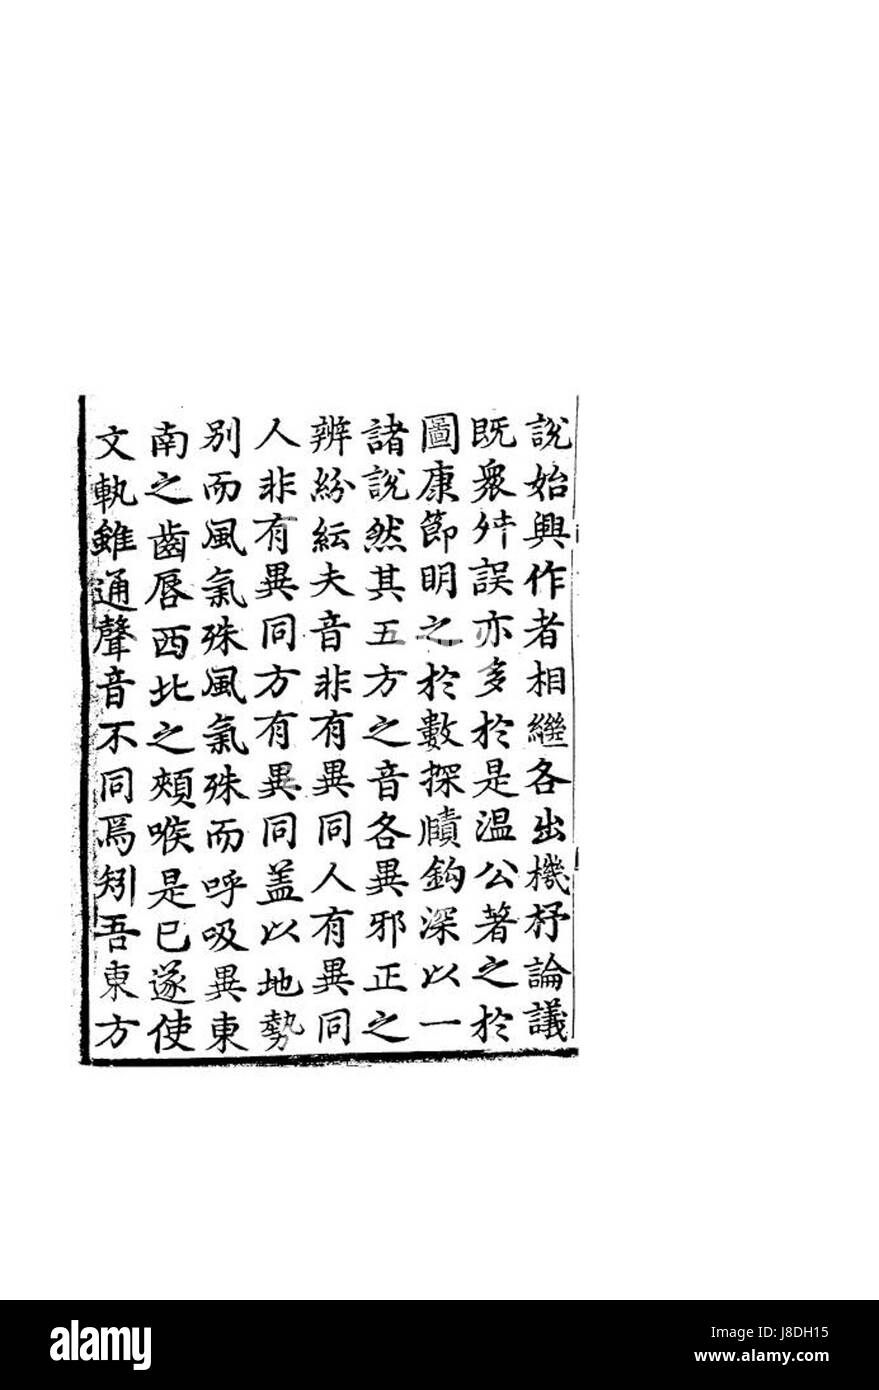 說始興作者相繼各出機杼論議
既衆舛誤亦多於是温公著之於
圖康節明之於數探賾鈎深以一
諸說然其五方之音各異邪正之
辨紛紜夫音非有異同人有異同
人非有異同方有異同盖以地勢
別而風氣殊風氣殊而呼吸異東
南之齒唇西北之頰喉是已遂使
文軌雖通聲音不同焉矧吾東方
alamy
Image ID: J8DH15
www.alamy.com